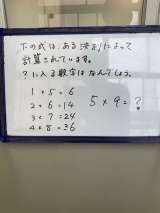 下の式は、ある決まりによって
計算されています。
?に入る数字はなんでしょう。
1 × 5 = 6
2 × 6 = 14
3 × 7 = 24
4 × 8 = 36
5 × 9 = ?